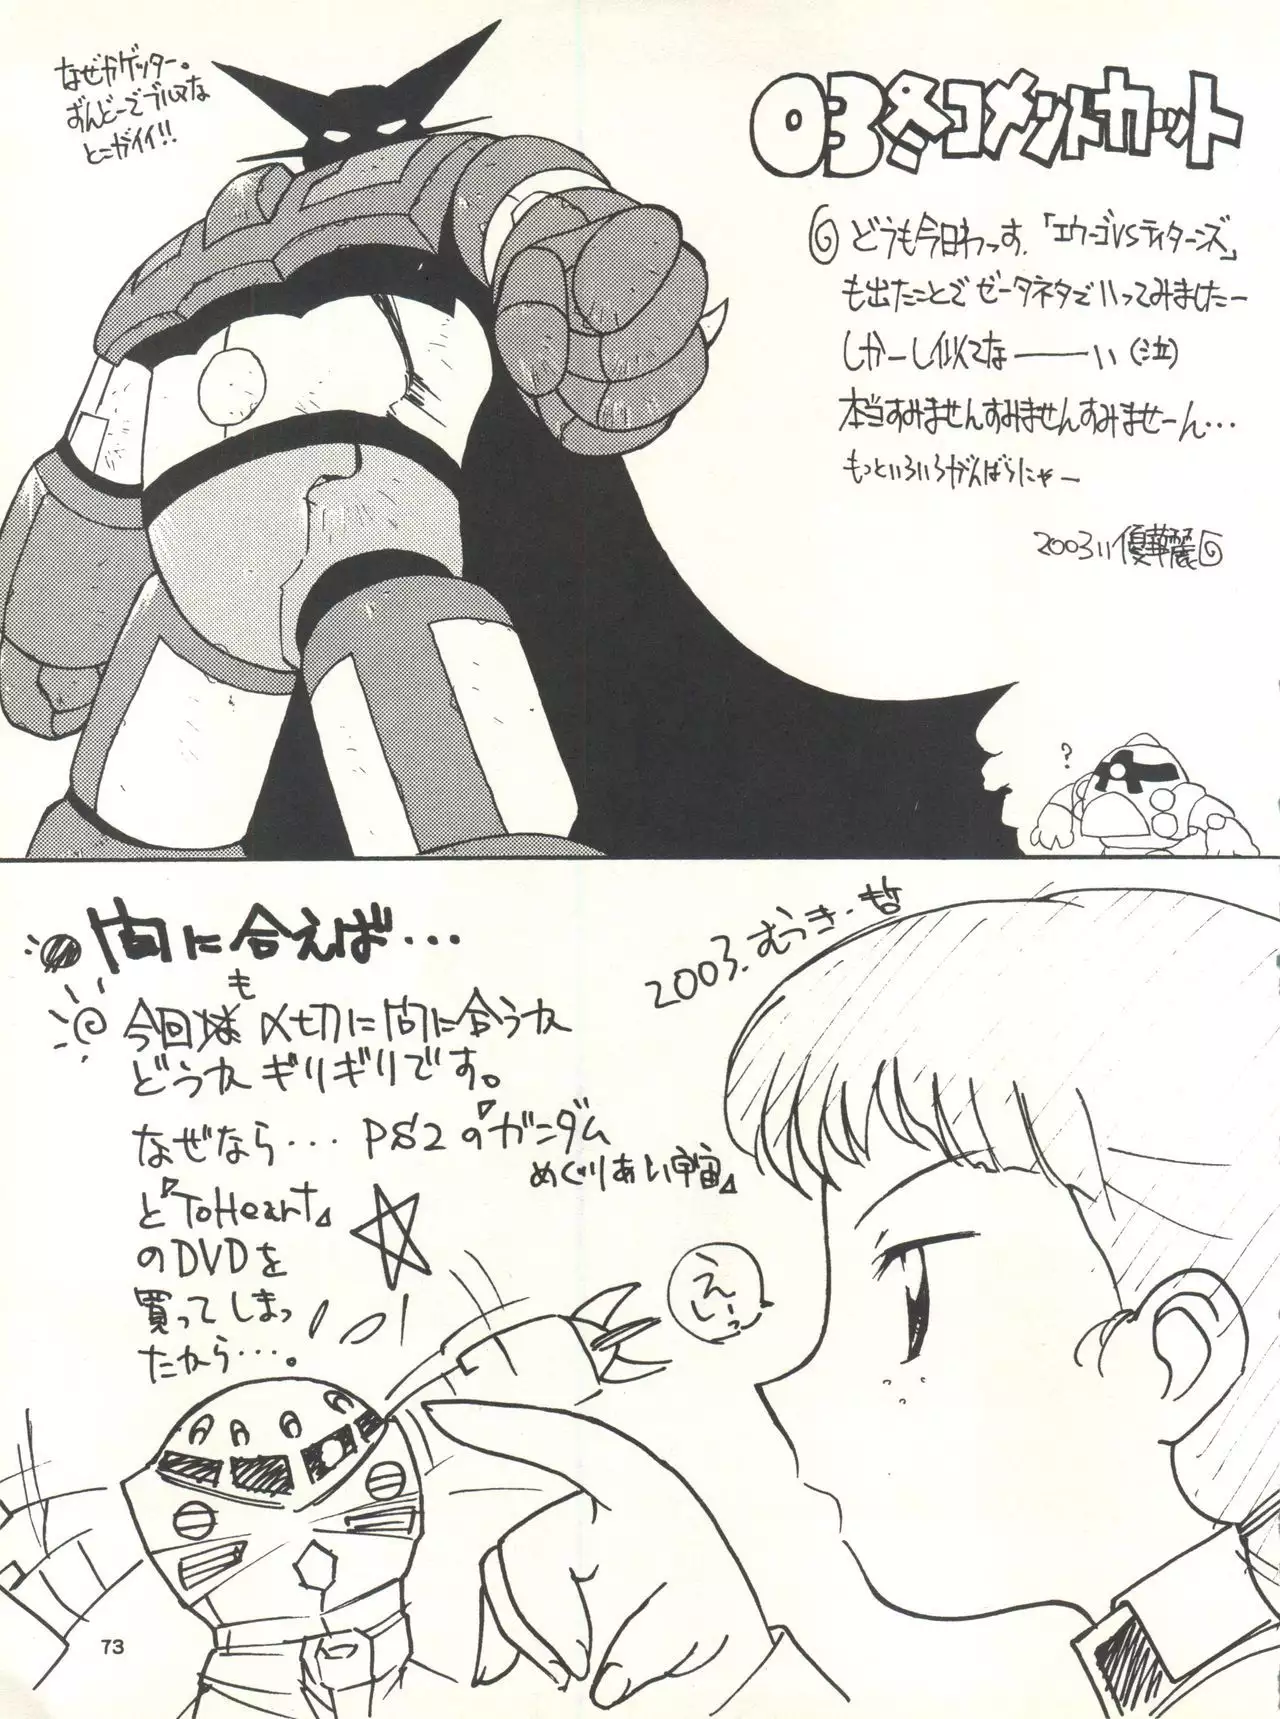 なぜかゲッター。
ずんどーでブルマな
とこがイイ!!
03冬コメントカット
どうも今日わっす、「エウーゴVSティターンズ」
も出たことでゼータネタでいってみましたー
しかーし似てなーーーい(泣)
本当すみませんすみませんすみませーん…
もっといろいろがんばらにゃー
2003.11 優華麗
?
間に合えば…
2003.むつき・哲
今回も〆切に間に合うか
どうかギリギリです。
なぜなら… PS2の『ガンダム
めぐりあい宇宙』
と『ToHeart』
のDVDを
買ってしまっ
たから…。
えいーっ
73